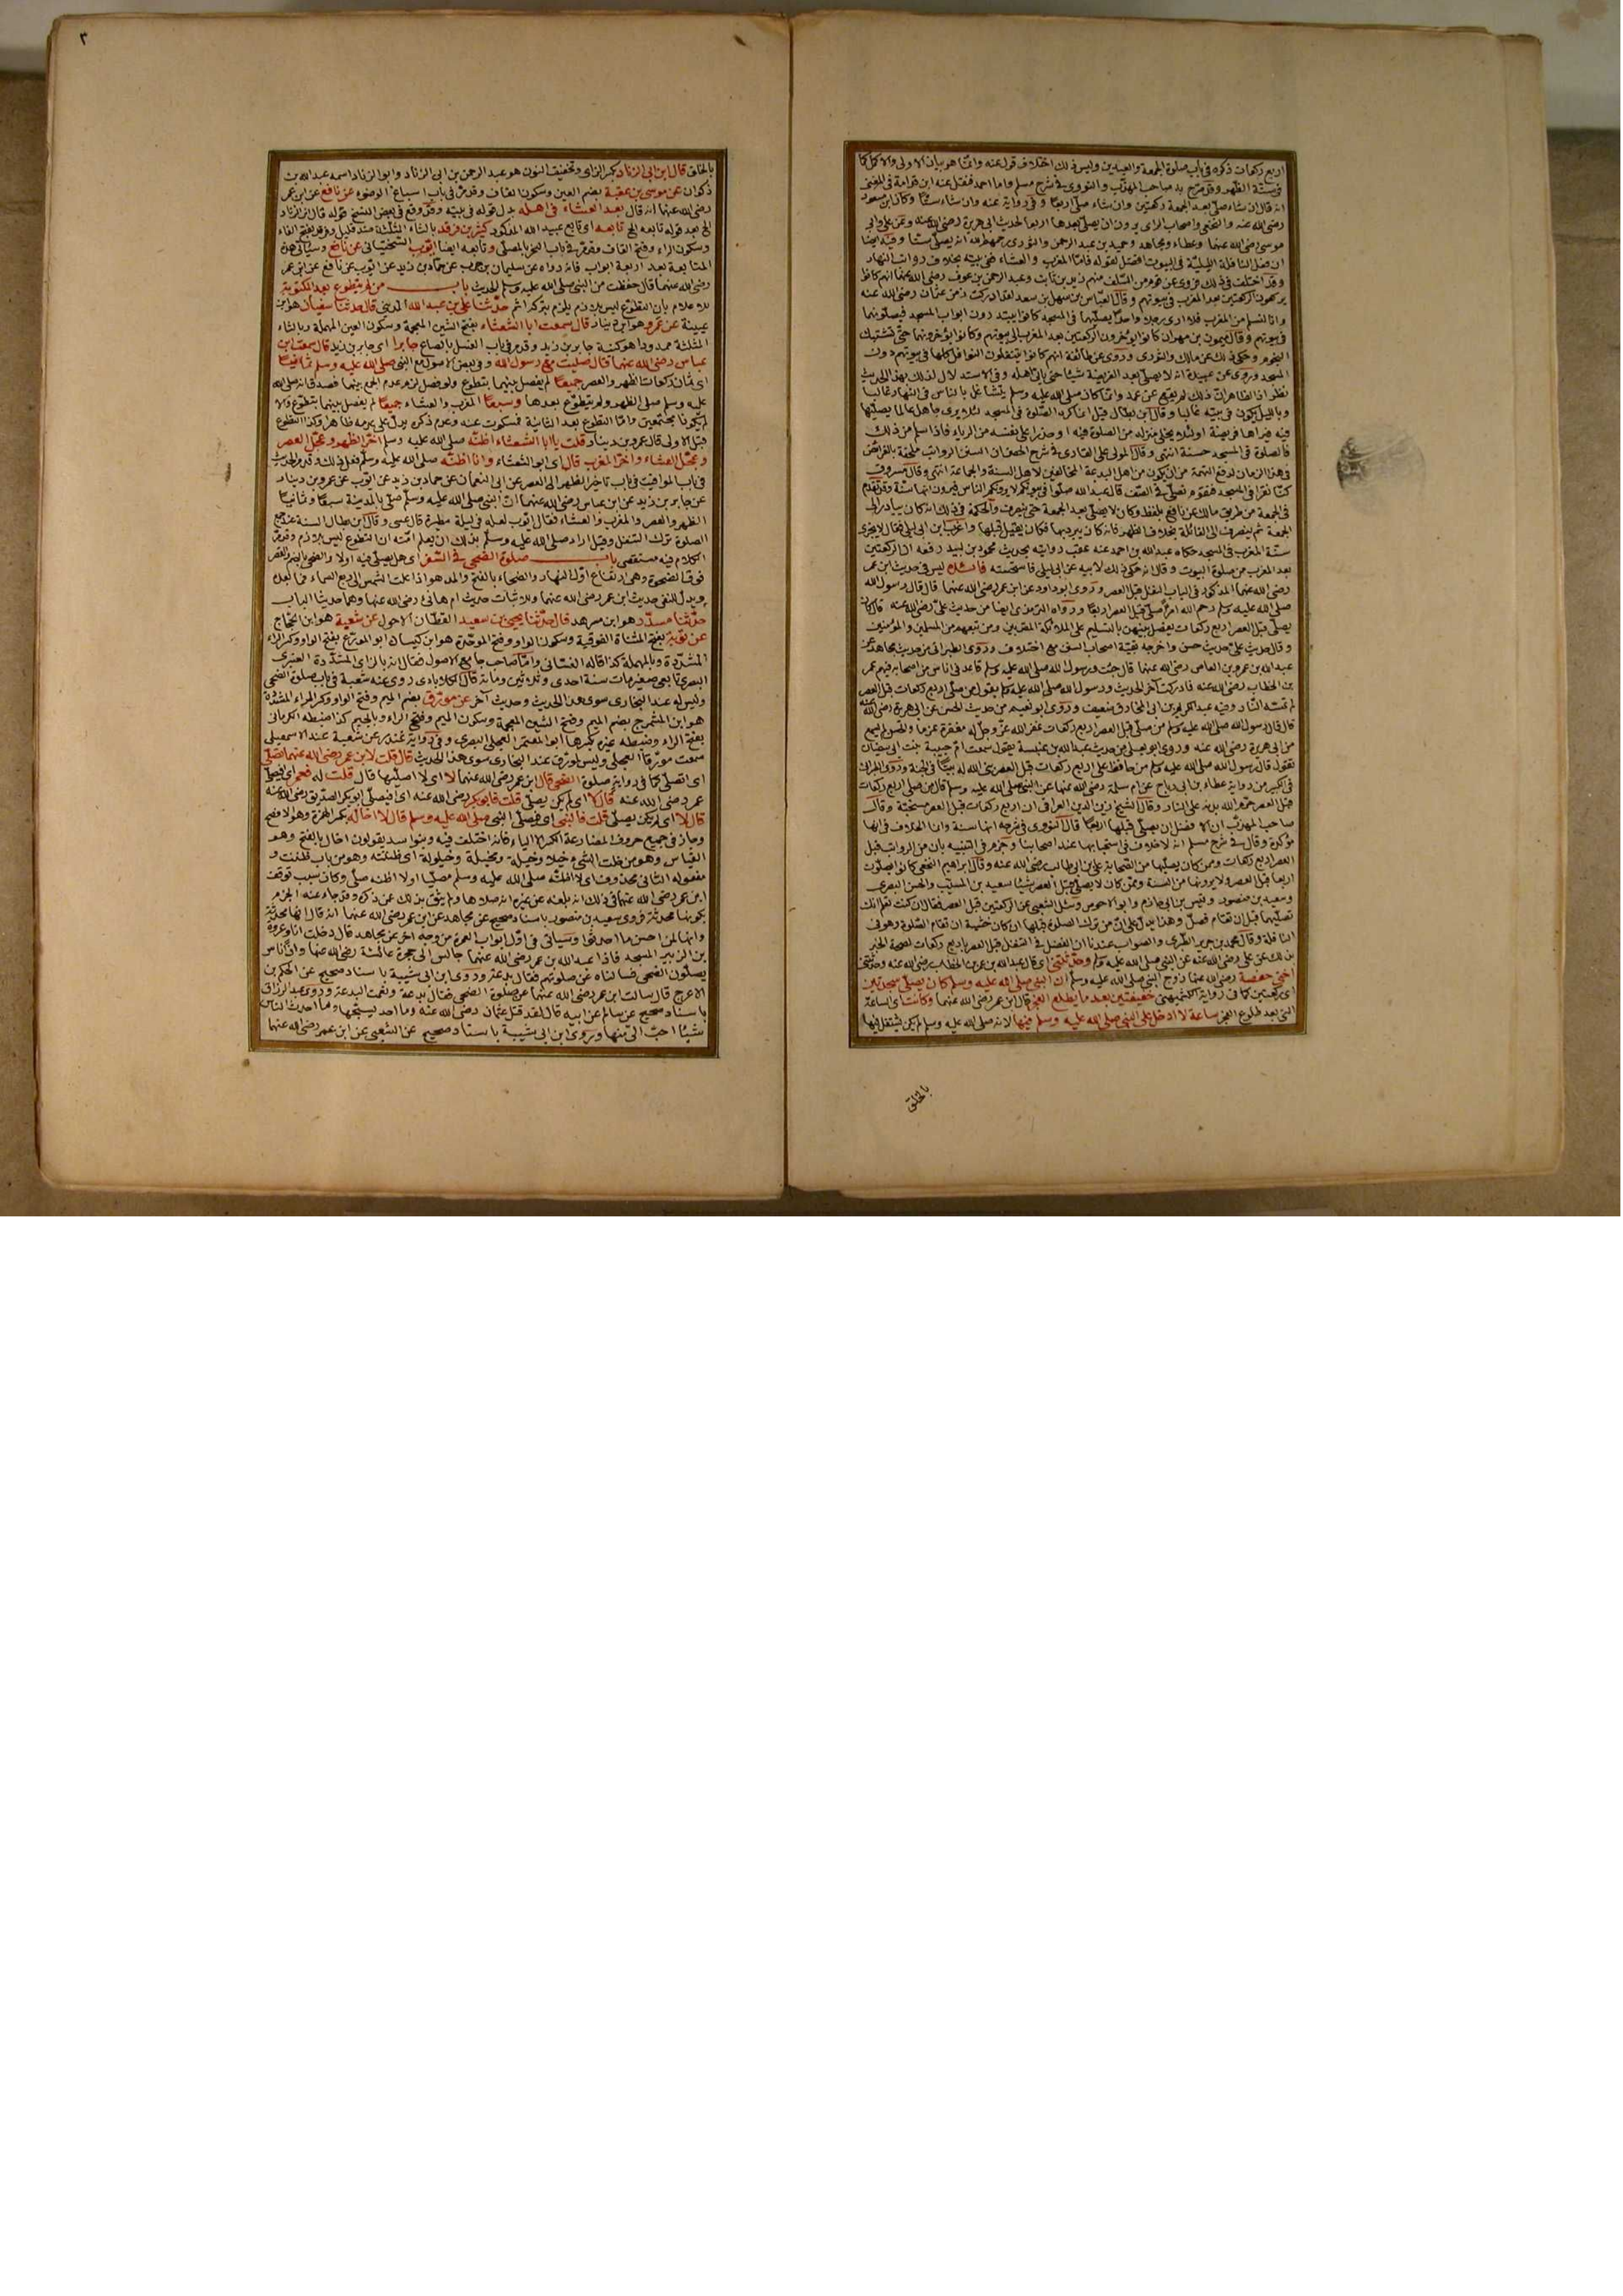 اربع ركعات ذكره فى باب صلوة الجمعة والعيدين وليس ذلك اختلاف قول عنه وانما هو بيان الاولى والاكمل كما
فى سنة الظهر وقد صرح به صاحب المهذب والنووى فى شرح مسلم واما احمد فنقل عنه ابن قدامة فى المغنى
انه قال ان شاء صلى بعد الجمعة ركعتين وان شاء صلى اربعا وفى رواية عنه وان شاء ستا وكان ابن مسعود
رضى الله عنه والنخعى واصحاب الراى يرون ان يصلى بعدها اربعا لحديث ابى هريرة رضى الله عنه وعن على وابى
موسى رضى الله عنهما وعطاء ومجاهد وحميد بن عبد الرحمن والثورى رحمهم الله انه يصلى ستا وفيه ايضا
ان فضل النافلة الليلية فى البيوت افضل لقوله فاما المغرب والعشاء ففى بيته بخلاف رواتب النهار
وقد اختلف فى ذلك فروى عن قوم من السلف منهم زيد بن ثابت وعبد الرحمن بن عوف رضى الله عنهما انهم كانوا
يركعون الركعتين بعد المغرب فى بيوتهم وقال العباس بن سهل بن سعد لقد ادركت زمن عثمان رضى الله عنه
وانا لنسلم من المغرب فلا ارى رجلا واحدا يصليهما فى المسجد كانوا يبتدرون ابواب المسجد فيصلونهما
فى بيوتهم وقال ميمون بن مهران كانوا يؤخرون الركعتين بعد المغرب الى بيوتهم وكانوا يؤخرونهما حتى تشتبك
النجوم وحكى ذلك عن مالك والثورى وروى عن طائفة انهم كانوا يتنفلون النوافل كلها فى بيوتهم دون
المسجد وروى عن عبيدة انه لا يصلى بعد الفريضة شيئا حتى ياتى اهله وفى الاستدلال لذلك بهذا الحديث
نظر اذ الظاهر ان ذلك لم يقع عن عمد وانما كان صلى الله عليه وسلم يتشاغل بالناس فى النهار غالبا
وبالليل يكون فى بيته غالبا وقال ابن بطال قيل انما كره الصلوة فى المسجد لئلا يرى جاهل عالما يصليها
فيه فيراها فريضة او لئلا يخلى منزله من الصلوة فيه او حذرا على نفسه من الرياء فاذا سلم من ذلك
فالصلوة فى المسجد حسنة انتهى وقال المولى على القارى فى شرح الحصن ان السنن الرواتب ملحقة بالفرائض
فى هذا الزمان لدفع التهمة من ان يكون من اهل البدعة المخالفين لاهل السنة والجماعة انتهى وقال مسروق
كنا نقرا فى المسجد فنقوم نصلى فى الصف قال عبد الله صلوا فى بيوتكم لا يرونكم الناس فيرون انها سنة وقد تقدم
فى الجمعة من طريق مالك عن نافع بلفظ وكان لا يصلى بعد الجمعة حتى ينصرف والحكمة فى ذلك انه كان يبادر الى
الجمعة ثم ينصرف الى القائلة بخلاف الظهر فانه كان يبرد بها فكان يقيل قبلها واغرب ابن ابى ليلى فقال لا يجزى
سنة المغرب فى المسجد حكاه عبد الله بن احمد عنه عقب روايته بحديث محمود بن لبيد رفعه ان الركعتين
بعد المغرب من صلوة البيوت وقال انه حكى ذلك لابيه عن ابن ابى ليلى فاستحسنه فائدة ليس فى حديث ابن عمر
رضى الله عنهما المذكور فى الباب النفل قبل العصر وروى ابو داود عن ابن عمر رضى الله عنهما قال قال رسول الله
صلى الله عليه وسلم رحم الله امرأ صلى قبل العصر اربعا ورواه الترمذى ايضا من حديث على رضى الله عنه قال كان
يصلى قبل العصر اربع ركعات يفصل بينهن بالتسليم على الملائكة المقربين ومن تبعهم من المسلمين والمؤمنين
وقال حديث على حديث حسن واخرجه بقية اصحاب السنن مع اختلاف وروى الطبرانى من حديث مجاهد عن
عبد الله بن عمرو بن العاص رضى الله عنهما قال جئت ورسول الله صلى الله عليه وسلم قاعد فى اناس من اصحابه فيهم عمر
بن الخطاب رضى الله عنه فادركت آخر الحديث ورسول الله صلى الله عليه وسلم يقول من صلى اربع ركعات قبل العصر
لم تمسه النار وفيه عبد الكريم بن ابى المخارق ضعيف وروى ابو نعيم من حديث الحسن عن ابى هريرة رضى الله عنه
قال قال رسول الله صلى الله عليه وسلم من صلى قبل العصر اربع ركعات غفر الله عز وجل له مغفرة عزما والحسن لم يسمع
من ابى هريرة رضى الله عنه وروى ابو يعلى من حديث عبد الله بن عنبسة يقول سمعت ام حبيبة بنت ابى سفيان
تقول قال رسول الله صلى الله عليه وسلم من حافظ على اربع ركعات قبل العصر بنى الله له بيتا فى الجنة وروى الطبرانى
فى الكبير من رواية عطاء بن ابى رباح عن ام سلمة رضى الله عنها عن النبى صلى الله عليه وسلم قال من صلى اربع ركعات
قبل العصر حرم الله بدنه على النار وقال الشيخ زين الدين العراقى ان اربع ركعات قبل العصر مستحبة وقال
صاحب المهذب ان الافضل ان يصلى قبلها اربعا قال النووى فى شرحه انها سنة وانا الخلاف فى انها
مؤكدة وقال فى شرح مسلم انه لا خلاف فى استحبابها عند اصحابنا وجزم فى التنبيه بان من الرواتب قبل
العصر اربع ركعات وممن كان يصليها من الصحابة على بن ابى طالب رضى الله عنه وقال ابراهيم النخعى كانوا يصلون
اربعا قبل العصر ولا يرونها من السنة وممن كان لا يصلى قبل العصر شيئا سعيد بن المسيب والحسن البصرى
وسعيد بن منصور وقيس بن ابى حازم وابو الاحوص وسئل الشعبى عن الركعتين قبل العصر فقال ان كنت تعلم انك
تصليهما قبل ان تقام فصل وهذا يدل على ان من ترك الصلوة قبلها ان كان خشية ان تقام الصلوة وهو فى
النافلة وقال محمد بن جرير الطبرى والصواب عندنا ان الفضل فى التنفل قبل العصر باربع ركعات لصحة الخبر
بذلك عن على رضى الله عنه عن النبى صلى الله عليه وسلم وحدثتنى اى قال عبد الله بن عمر بن الخطاب رضى الله عنه وحدثتنى
اختى حفصة رضى الله عنها زوج النبى صلى الله عليه وسلم ان النبى صلى الله عليه وسلم كان يصلى سجدتين
اى ركعتين كما فى رواية الكشميهنى خفيفتين بعد ما يطلع الفجر قال ابن عمر رضى الله عنهما وكانت اى الساعة
التى بعد طلوع الفجر ساعة لا ادخل على النبى صلى الله عليه وسلم فيها لانه صلى الله عليه وسلم لم يكن يشتغل فيها
بالخلق
٣
بالخلق قال ابن ابى الزناد بكسر الزاى وتخفيف النون هو عبد الرحمن بن ابى الزناد وابو الزناد اسمه عبد الله بن
ذكوان عن موسى بن عقبة بضم العين وسكون القاف وقد مر فى باب اسباغ الوضوء عن نافع عن ابن عمر
رضى الله عنهما انه قال بعد العشاء فى اهله بدل قوله فى بيته وقد وقع فى بعض النسخ قوله قال ابن ابى الزناد
الخ بعد قوله تابعه الخ تابعه اى تابع عبيد الله المذكور كثير بن فرقد بالثاء المثلثة ضد قليل وفرقد بفتح الفاء
وسكون الراء وفتح القاف وقد مر فى باب النحر بالمصلى وتابعه ايضا ايوب السختيانى عن نافع وسياتى هذه
المتابعة بعد اربعة ابواب فانه رواه عن سليمان بن حرب عن حماد بن زيد عن ايوب عن نافع عن ابن عمر
رضى الله عنهما قال حفظت من النبى صلى الله عليه وسلم الحديث باب من لم يتطوع بعد المكتوبة
للاعلام بان التطوع ليس بلازم يلزم بتركه اثم حدثنا على بن عبد الله المدينى قال حدثنا سفيان هو ابن
عيينة عن عمرو هو ابن دينار قال سمعت ابا الشعثاء بفتح الشين المعجمة وسكون العين المهملة وبالثاء
المثلثة ممدودا هو كنية جابر بن زيد وقد مر فى باب الغسل بالصاع جابرا اى جابر بن زيد قال سمعت ابن
عباس رضى الله عنهما قال صليت مع رسول الله وفى بعض الاصول مع النبى صلى الله عليه وسلم ثمانيا
اى ثمان ركعات الظهر والعصر جميعا لم يفصل بينهما بتطوع ولو فصل لزم عدم الجمع بينهما فصدق انه صلى الله
عليه وسلم صلى الظهر ولم يتطوع بعدها وسبعا المغرب والعشاء جميعا لم يفصل بينهما بتطوع والا
لم يكونا مجتمعين واما التطوع بعد الثانية فسكوت عنه وعدم ذكره يدل على عدمه ظاهرا وكذا التطوع
قبل الاولى قال عمرو بن دينار قلت يا ابا الشعثاء اظنه صلى الله عليه وسلم اخر الظهر وعجل العصر
وعجل العشاء واخر المغرب قال اى ابو الشعثاء وانا اظنه صلى الله عليه وسلم فعل ذلك وقد مر الحديث
فى باب المواقيت فى باب تاخير الظهر الى العصر عن ابى النعمان عن حماد بن زيد عن ايوب عن عمرو بن دينار
عن جابر بن زيد عن ابن عباس رضى الله عنهما ان النبى صلى الله عليه وسلم صلى بالمدينة سبعا وثمانيا
الظهر والعصر والمغرب والعشاء فقال ايوب لعله فى ليلة مطيرة قال عسى وقال ابن بطال السنة عند جمع
الصلوة ترك التنفل وقيل اراد صلى الله عليه وسلم بذلك ان يعلم امته ان التطوع ليس بلازم وقد مر
الكلام فيه مستقصى باب صلوة الضحى فى السفر اى هل يصلى فيه اولا والضحى بالضم والقصر
فوق الضحوة وهى ارتفاع اول النهار والضحاء بالفتح والمد هو اذا علت الشمس الى ربع السماء فما بعد
ويدل للنفى حديث ابن عمر رضى الله عنهما وللاثبات حديث ام هانئ رضى الله عنها وهما حديثا الباب
حدثنا مسدد هو ابن مسرهد قال حدثنا يحيى بن سعيد القطان الاحول عن شعبة هو ابن الحجاج
عن توبة بفتح المثناة الفوقية وسكون الواو وفتح الموحدة هو ابن كيسان ابو المورع بفتح الواو وكسر الراء
المشددة وبالمهملة كذا قاله الغسانى واما صاحب جامع الاصول فقال انه بالزاى المشددة العنبرى
البصرى تابعى صغير مات سنة احدى وثلاثين ومائة قال الكلاباذى روى عنه شعبة فى باب صلوة الضحى
وليس له عند البخارى سوى هذا الحديث وحديث آخر عن مورق بضم الميم وفتح الواو وكسر الراء المشددة
هو ابن المشمرج بضم الميم وفتح الشين المعجمة وسكون الميم وفتح الراء وبالجيم كذا ضبطه الكرمانى
بفتح الراء وضبطه غيره بكسرها ابو المعتمر العجلى البصرى وفى رواية غندر عن شعبة عند الاسمعيلى
سمعت مورقا العجلى وليس لمورق عند البخارى سوى هذا الحديث قال قلت لابن عمر رضى الله عنهما اتصلى
اى اتصلى كما فى رواية صلوة الضحى قال ابن عمر رضى الله عنهما لا اى لا اصليها قال قلت له فعمر اى افيصلى
عمر رضى الله عنه قال لا اى لم يكن يصلى قلت فابو بكر رضى الله عنه اى افيصلى ابو بكر الصديق رضى الله عنه
قال لا اى لم يكن يصلى قلت فالنبى اى فيصلى النبى صلى الله عليه وسلم قال لا اخاله بكسر الهمزة وهو الافصح
وجاز فى جميع حروف المضارعة الكسر الا الياء فانه اختلف فيه وبنو اسد يقولون اخال بالفتح وهو
القياس وهو من خلت الشئ خيلا وخيلة ومخيلة وخيلولة اى ظننته وهو من باب ظننت و
مفعوله الثانى محذوف اى لا اظنه صلى الله عليه وسلم مصليا او لا اظنه صلى وكان سبب توقف
ابن عمر رضى الله عنهما فى ذلك انه بلغه عن غيره انه صلاها ولم يثق بذلك عمن ذكره وقد جاء عنه الجزم
بكونها محدثة فروى سعيد بن منصور باسناد صحيح عن مجاهد عن ابن عمر رضى الله عنهما انه قال انها محدثة
وانها لمن احسن ما احدثوا وسياتى فى اول ابواب العمرة من وجه آخر عن مجاهد قال دخلت انا وعروة
بن الزبير المسجد فاذا عبد الله بن عمر رضى الله عنهما جالس الى حجرة عائشة رضى الله عنها واذا ناس
يصلون الضحى فسالناه عن صلوتهم فقال بدعة وروى ابن ابى شيبة باسناد صحيح عن الحكم بن
الاعرج قال سالت ابن عمر رضى الله عنهما عن صلوة الضحى فقال بدعة ونعمت البدعة وروى عبد الرزاق
باسناد صحيح عن سالم عن ابيه قال لقد قتل عثمان رضى الله عنه وما احد يسبحها وما احدث الناس
شيئا احب الى منها وروى ابن ابى شيبة باسناد صحيح عن الشعبى عن ابن عمر رضى الله عنهما